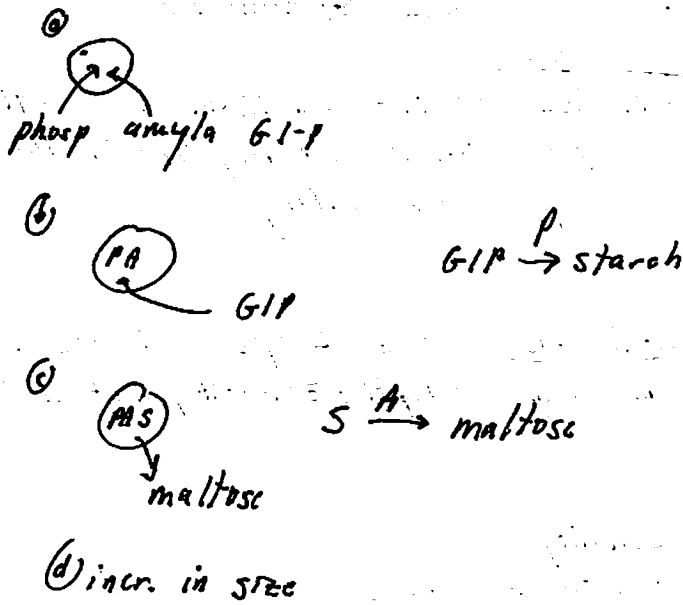 ⓐ
phosp amyla G1-P
ⓑ
PA
G1P
G1P →P starch
ⓒ
PAS
S →A maltose
maltose
ⓓ incr. in size